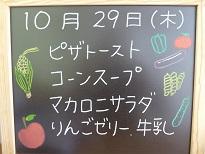 10月29日(木)
ピザトースト
コーンスープ
マカロニサラダ
りんごゼリー、牛乳